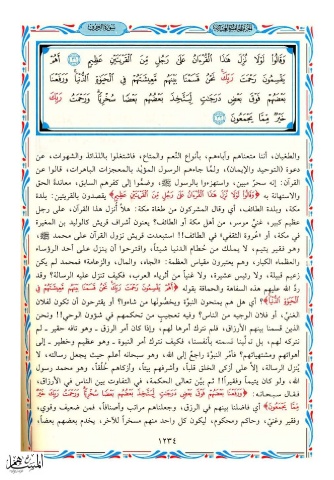 سورة الزخرف
وَقَالُوا لَوْلَا نُزِّلَ هَٰذَا الْقُرْآنُ عَلَىٰ رَجُلٍ مِّنَ الْقَرْيَتَيْنِ عَظِيمٍ أَهُمْ
يَقْسِمُونَ رَحْمَتَ رَبِّكَ نَحْنُ قَسَمْنَا بَيْنَهُم مَّعِيشَتَهُمْ فِي الْحَيَاةِ الدُّنْيَا وَرَفَعْنَا
بَعْضَهُمْ فَوْقَ بَعْضٍ دَرَجَاتٍ لِّيَتَّخِذَ بَعْضُهُم بَعْضًا سُخْرِيًّا وَرَحْمَتُ رَبِّكَ
خَيْرٌ مِّمَّا يَجْمَعُونَ
والطغيان، أننا متعناهم وآباءهم، بأنواع النعم والمتاع، فاشتغلوا باللذائذ والشهوات، عن
دعوة (التوحيد والإيمان)، ولمّا جاءهم الرسول المؤيّد بالمعجزات الباهرات، قالوا عن
القرآن: إنه سحرٌ مبين، واستهزءوا بالرسول ﷺ، وضمُّوا إلى كفرهم السابق، معاندة الحق
والاستهانة به ﴿وَقَالُوا لَوْلَا نُزِّلَ هَٰذَا الْقُرْآنُ عَلَىٰ رَجُلٍ مِّنَ الْقَرْيَتَيْنِ عَظِيمٍ﴾ يقصدون بالقريتين: بلدة
مكة، وبلدة الطائف، أي وقال المشركون من طغاة مكة: هلّا أُنزل هذا القرآن، على رجل
عظيم كبير، غنيّ موسر، من أهل مكة أو الطائف؟ يعنون أشراف قريش كالوليد بن المغيرة
في مكة، أو عروة الثقفي في الطائف!! استبعدت قريش نزول القرآن على محمد ﷺ،
وهو فقير يتيم، لا يملك من حُطام الدنيا شيئاً، واقترحوا أن ينزل على أحد الرؤساء
والعظماء الكبار، وهم يعتبرون مقياس العظمة: «الجاه، والمال، والزعامة» فمحمد لم يكن
زعيم قبيلة، ولا رئيس عشيرة، ولا غنياً من أثرياء العرب، فكيف تنزل عليه الرسالة؟ وقد
ردَّ الله عليهم هذه السفاهة والحماقة بقوله ﴿أَهُمْ يَقْسِمُونَ رَحْمَتَ رَبِّكَ نَحْنُ قَسَمْنَا بَيْنَهُم مَّعِيشَتَهُمْ فِي
الْحَيَاةِ الدُّنْيَا﴾؟ أي هل هم يمنحون النبوّة ويخصّون بها من شاءوا؟ أو يقترحون أن تكون لفلان
الغنيّ، أو فلان الوجيه من الناس؟ وفيه تعجيب من تحكمهم في شؤون الوحي!! ونحن
الذين قسمنا بينهم الأرزاق، فلم نترك أمرها لهم، وإذا كان أمر الرزق ـ وهو تافه حقير ـ لم
نتركه لهم، بل تولّينا قسمته بأنفسنا، فكيف نترك أمر النبوة ـ وهو عظيم وخطير ـ إلى
أهوائهم ومشتهياتهم؟ فأمر النبوة راجعٌ إلى الله، وهو سبحانه أعلم حيث يجعل رسالته، لا
يُنزل الرسالة، إلّا على أزكى الخلق قلباً، وأشرفهم بيتاً، وأزكاهم خُلُقاً، وهو محمد رسول
الله، ولو كان يتيماً وفقيراً!! ثم بيّن تعالى الحكمة، في التفاوت بين الناس في الأرزاق،
فقال سبحانه: ﴿وَرَفَعْنَا بَعْضَهُمْ فَوْقَ بَعْضٍ دَرَجَاتٍ لِّيَتَّخِذَ بَعْضُهُم بَعْضًا سُخْرِيًّا وَرَحْمَتُ رَبِّكَ خَيْرٌ
مِّمَّا يَجْمَعُونَ﴾ أي فاضلنا بينهم في الرزق، وجعلناهم مراتب وأصنافاً، فمن ضعيف وقوي،
وفقير وغنيّ، وحاكم ومحكوم، ليكون كل واحد منهم مسخراً للآخر، يخدم بعضهم بعضاً،
١٢٣٤